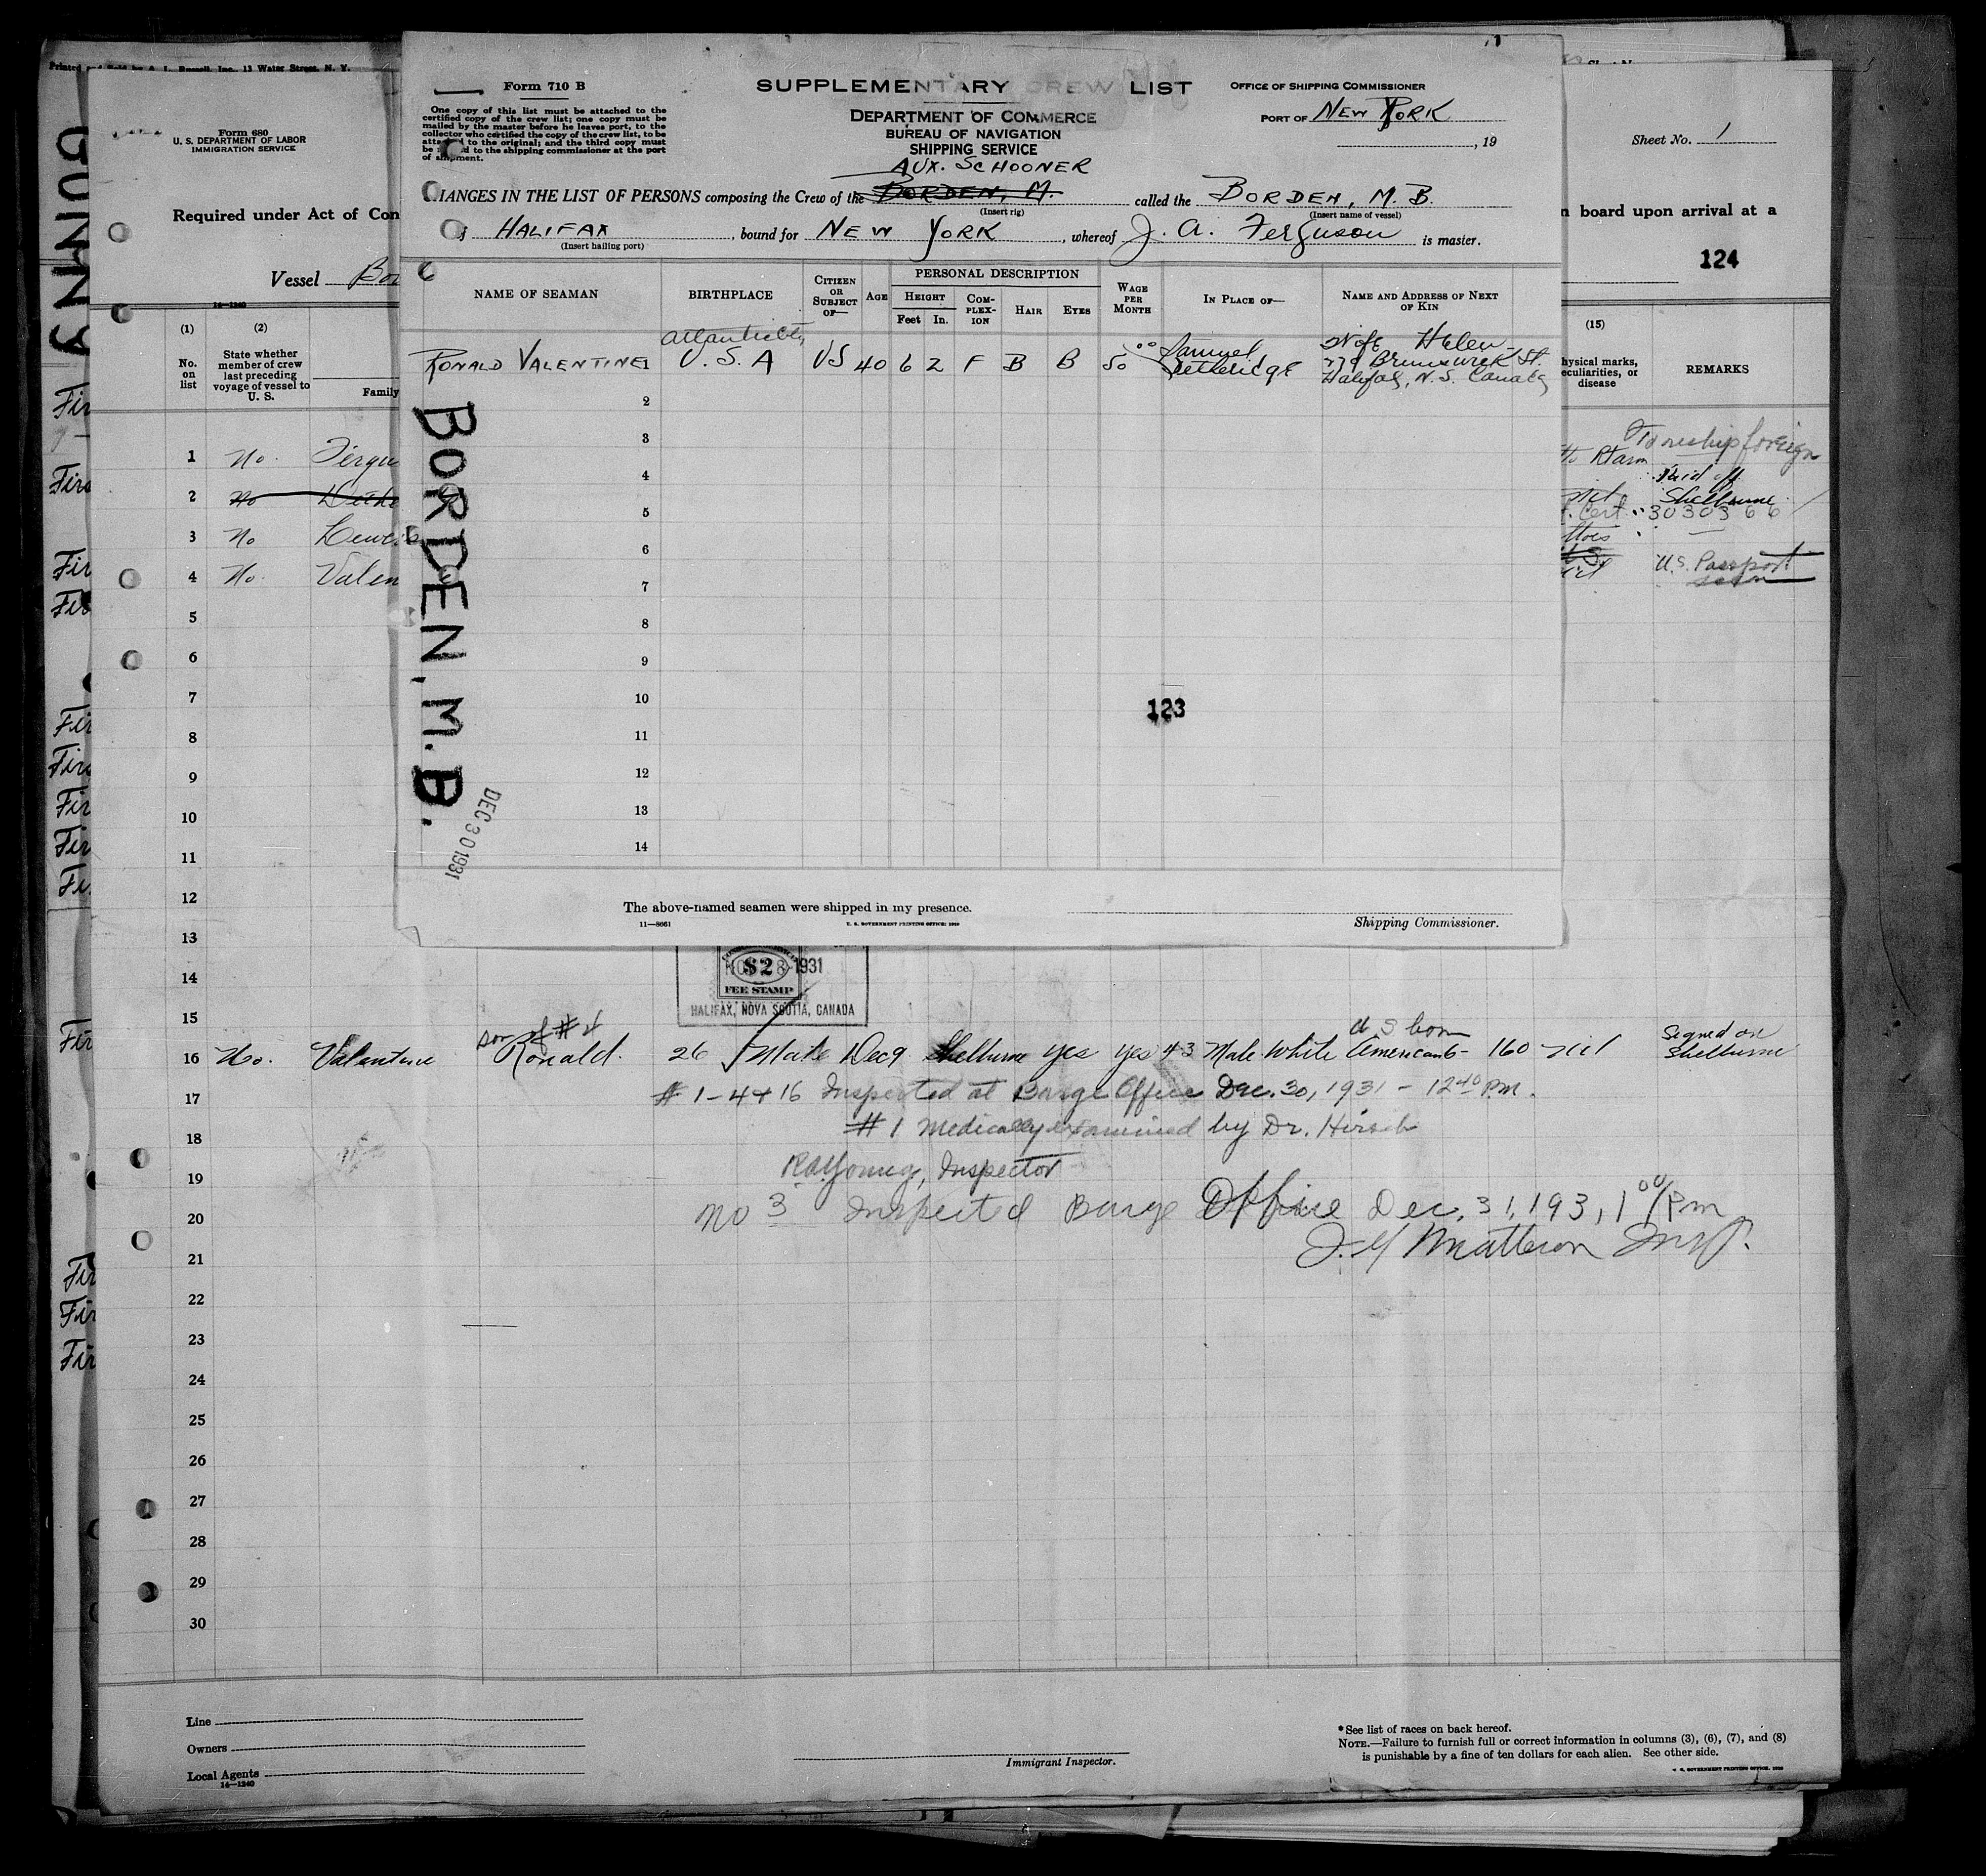 Printed and Sold by A. L. Russell, Inc., 13 Water Street, N. Y.
Form 710 B
One copy of this list must be attached to the
certified copy of the crew list; one copy must be
mailed by the master before he leaves port, to the
collector who certified the copy of the crew list, to be
to the original; and the third copy must
be d to the shipping commissioner at the port
of shipment.
SUPPLEMENTARY CREW LIST
DEPARTMENT OF COMMERCE
BUREAU OF NAVIGATION
SHIPPING SERVICE
OFFICE OF SHIPPING COMMISSIONER
PORT OF NEW YORK
, 19
AUX. SCHOONER
HANGES IN THE LIST OF PERSONS composing the Crew of the BORDEN, M. called the BORDEN, M. B.
(Insert rig) (Insert name of vessel)
HALIFAX, bound for NEW YORK, whereof J. A. Ferguson is master.
(Insert hailing port)
NAME OF SEAMAN
BIRTHPLACE
CITIZEN OR SUBJECT OF—
AGE
PERSONAL DESCRIPTION
HEIGHT
Feet In.
COM-PLEX-ION
HAIR
EYES
WAGE PER MONTH
IN PLACE OF—
NAME AND ADDRESS OF NEXT OF KIN
Atlantic City
RONALD VALENTINE 1 U.S.A US 40 6 2 F B B 50 00 Samuel Wife Helen
Brunswick St.
Halifax, N.S. Canada
2
3
4
5
6
7
8
9
10
11
12
13
14
123
BORDEN, M.B.
DEC 30 1931
The above-named seamen were shipped in my presence.
Shipping Commissioner.
11—8061
U. S. GOVERNMENT PRINTING OFFICE: 1929
Form 680
U. S. DEPARTMENT OF LABOR
IMMIGRATION SERVICE
Sheet No. 1
Required under Act of Con
n board upon arrival at a
124
Vessel Bor
14—1240
(1)
(2)
(15)
No. on list
State whether member of crew last preceding voyage of vessel to U. S.
Family
hysical marks, eculiarities, or disease
REMARKS
1 No. Fergu
foreign
2 No
Paid off
Shelburne
3 No Lewis
Cert. 3030366
4 No. Valen
U.S. Passport
seen
5
6
7
8
9
10
11
12
13
14
15
$2
1931
FEE STAMP
HALIFAX, NOVA SCOTIA, CANADA
son of #4
U S born
Signed on
16 No. Valentine Ronald. 26 Mate Dec 9 Shelburne yes yes 43 Male White American 6- 160 nil Shelburne
17 # 1-4 + 16 Inspected at Barge Office Dec. 30, 1931 - 12 40 P.M.
18 # 1 Medically examined by Dr. Hirsch
19 Young, Inspector
20 No 3 Inspected Barge Office Dec. 31, 1931 1 00/Pm
21 Matteson Insp.
22
23
24
25
26
27
28
29
30
Line
Owners
Local Agents
14—1240
Immigrant Inspector.
*See list of races on back hereof.
NOTE.—Failure to furnish full or correct information in columns (3), (6), (7), and (8)
is punishable by a fine of ten dollars for each alien. See other side.
U. S. GOVERNMENT PRINTING OFFICE: 1929